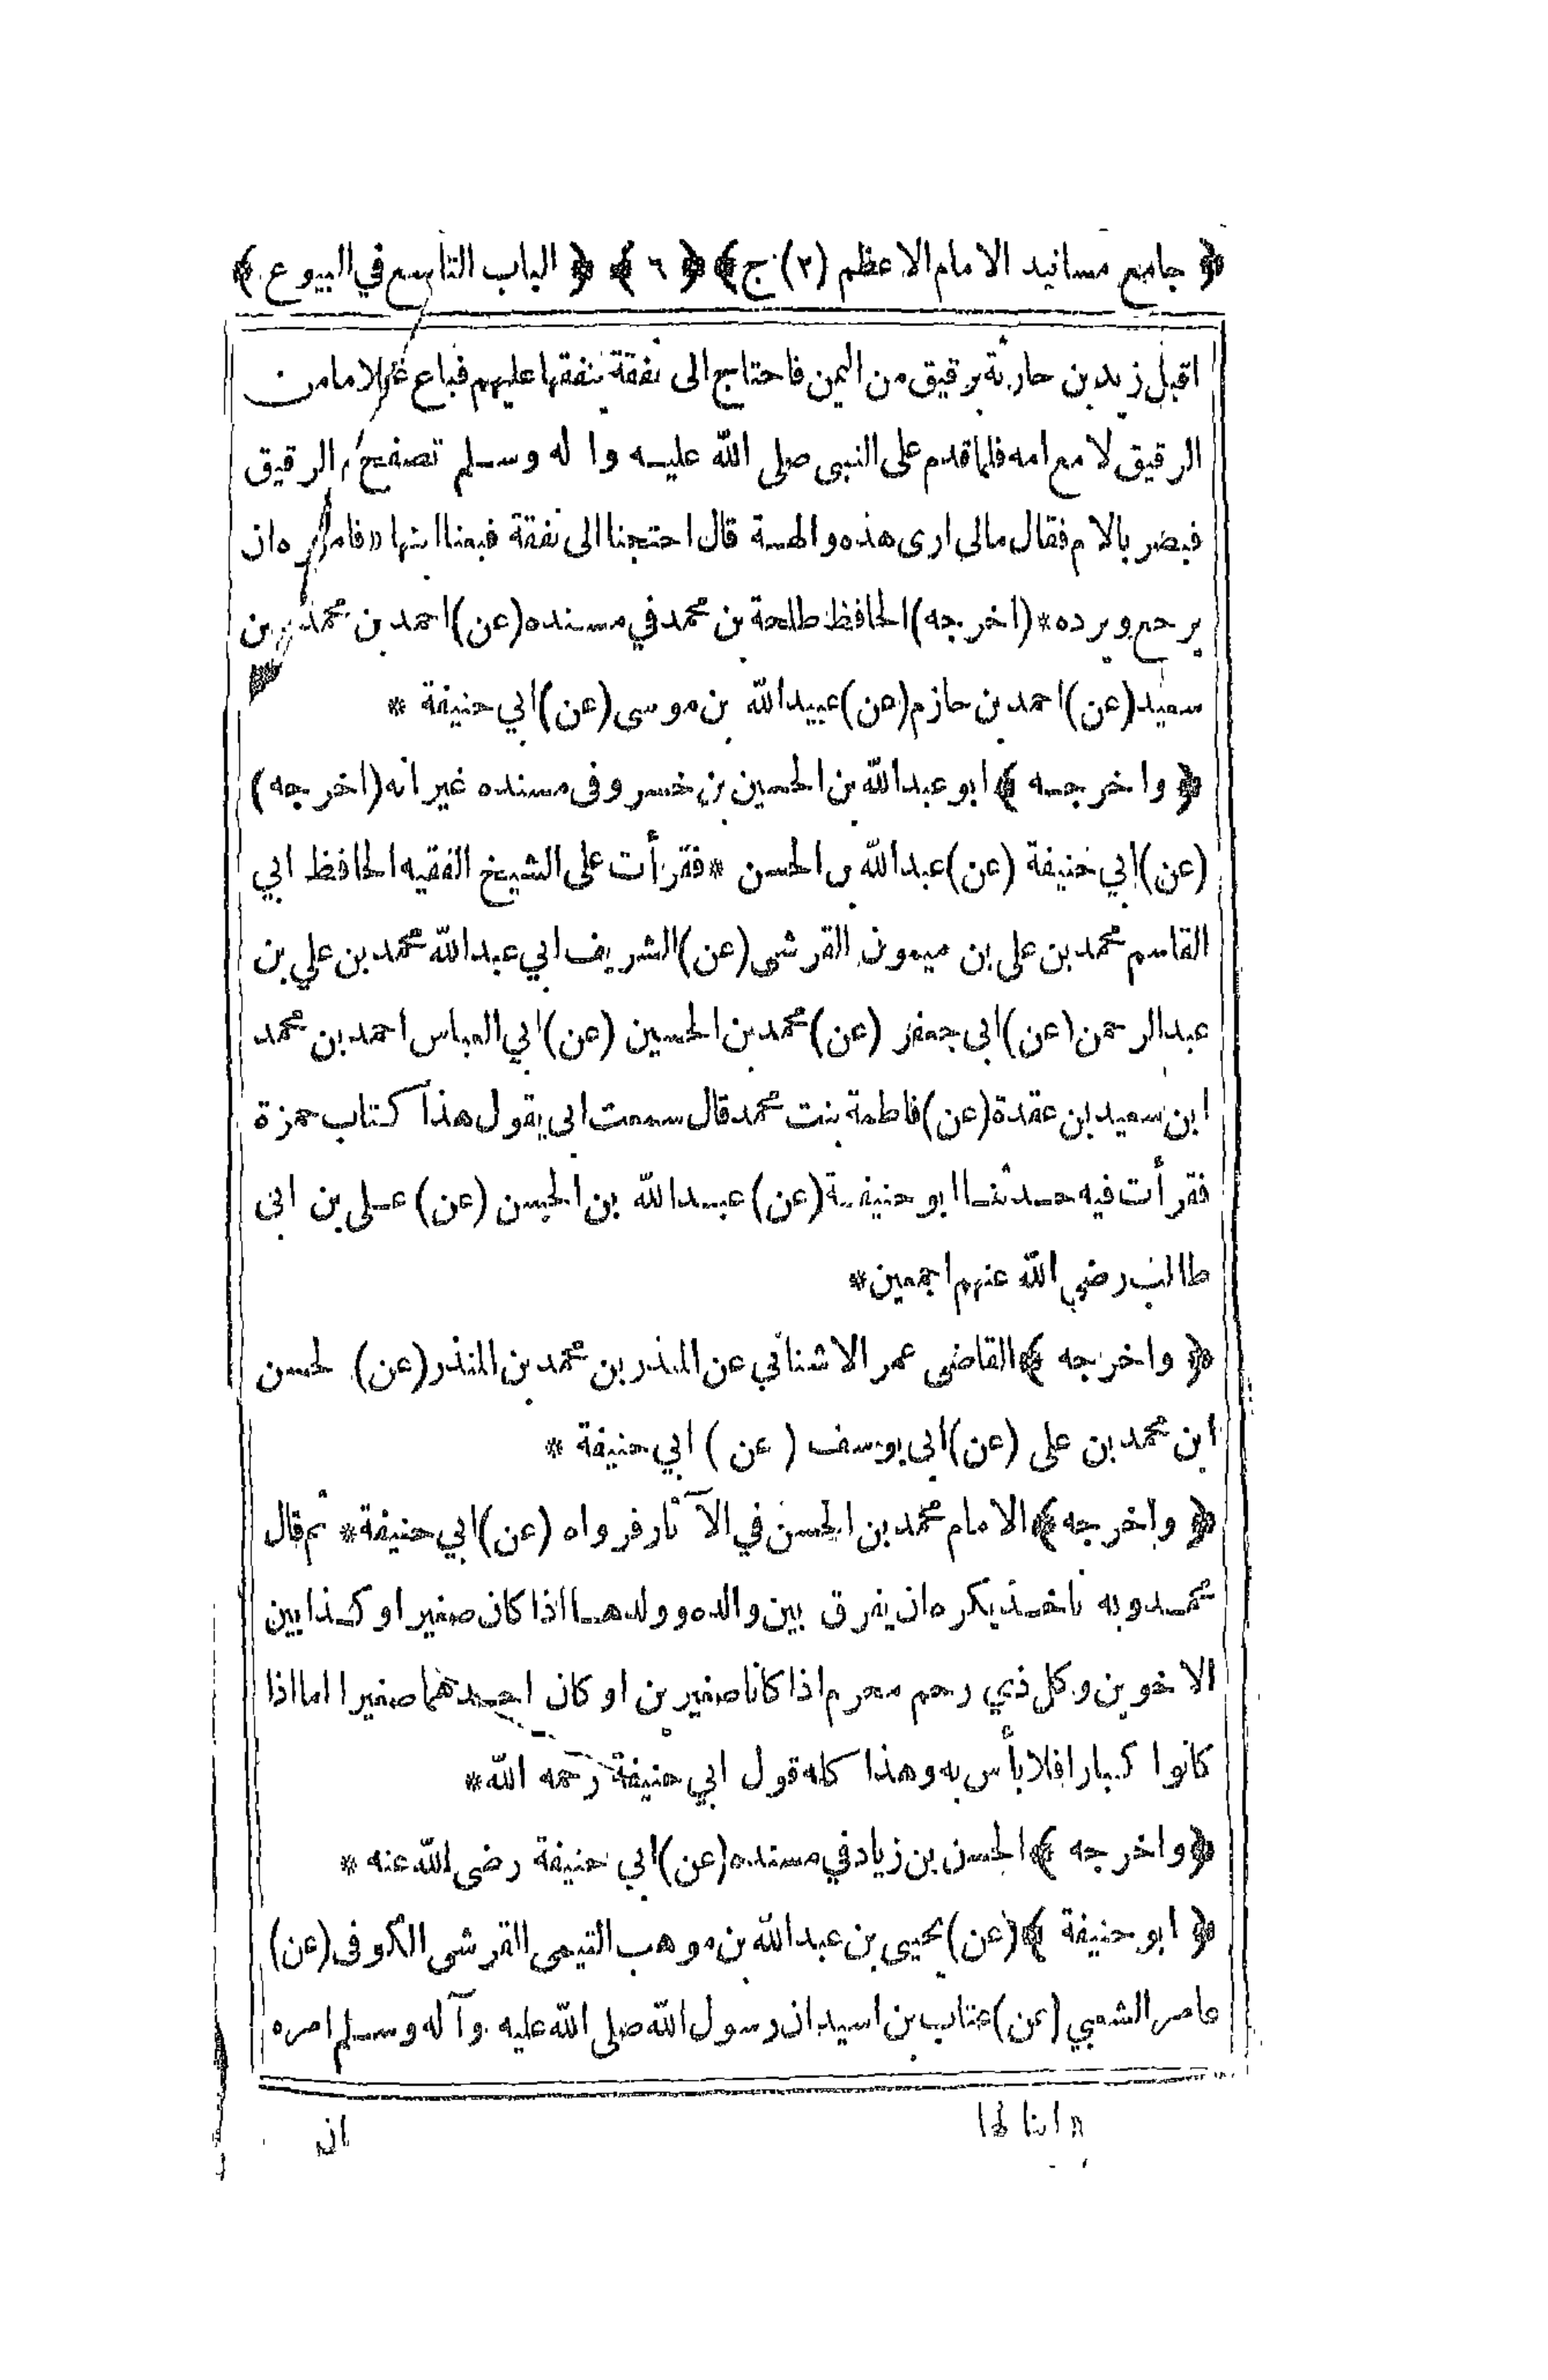 ﴿ جامع مسانيد الامام الاعظم (٢) ج﴾ ﴿ ٦ ﴾ ﴿ الباب التاسع في البيوع ﴾
اقبل زيد بن حارثة برقيق من اليمن فاحتاج الى نفقة ينفقها عليهم فباع غلاما من
الرقيق لا مع امه فلما قدم على النبى صلى الله عليه وا له وسلم تصفح الرقيق
فبصر بالام فقال مالى ارى هذه والهة قال احتجنا الى نفقة فبعنا ابنها «فامره ان
يرجع ويرده* (اخرجه) الحافظ طلحة بن محمد في مسنده (عن) احمد بن محمد بن
سعيد (عن) احمد بن حازم (عن) عبيد الله بن موسى (عن) ابي حنيفة *
﴿ واخرجه ﴾ ابو عبد الله بن الحسين بن خسرو فى مسنده غير انه (اخرجه)
(عن) ابي حنيفة (عن) عبد الله بن الحسن * فقرأت على الشيخ الفقيه الحافظ ابي
القاسم محمد بن على بن ميمون القرشى (عن) الشريف ابي عبد الله محمد بن علي بن
عبد الرحمن (عن) ابى جعفر (عن) محمد بن الحسين (عن) ابي العباس احمد بن محمد
ابن سعيد بن عقدة (عن) فاطمة بنت محمد قال سمعت ابى يقول هذا كتاب حمزة
فقرأت فيه حدثنا ابو حنيفة (عن) عبد الله بن الحسن (عن) على بن ابى
طالب رضي الله عنهم اجمعين*
﴿ واخرجه ﴾ القاضى عمر الاشناني عن المنذر بن محمد بن المنذر (عن) لحسن
ابن محمد بن على (عن) ابى يوسف ( عن ) ابي حنيفة *
﴿ واخرجه ﴾ الامام محمد بن الحسن في الآثار فرواه (عن) ابي حنيفة* ثم قال
محمد وبه ناخذ يكره ان يفرق بين والده وولدها اذا كان صغيرا وكذا بين
الاخوين وكل ذي رحم محرم اذا كانا صغيرين او كان احدهما صغيرا اما اذا
كانوا كبارا فلا بأس به وهذا كله قول ابي حنيفة رحمه الله*
﴿ واخرجه ﴾ الحسن بن زياد في مسنده (عن) ابي حنيفة رضى الله عنه *
﴿ ابو حنيفة ﴾ (عن) يحيى بن عبد الله بن موهب التيمى القرشى الكوفى (عن)
عامر الشعبي (عن) عتاب بن اسيد ان رسول الله صلى الله عليه وآله وسلم امره
« ابنا لها
ان